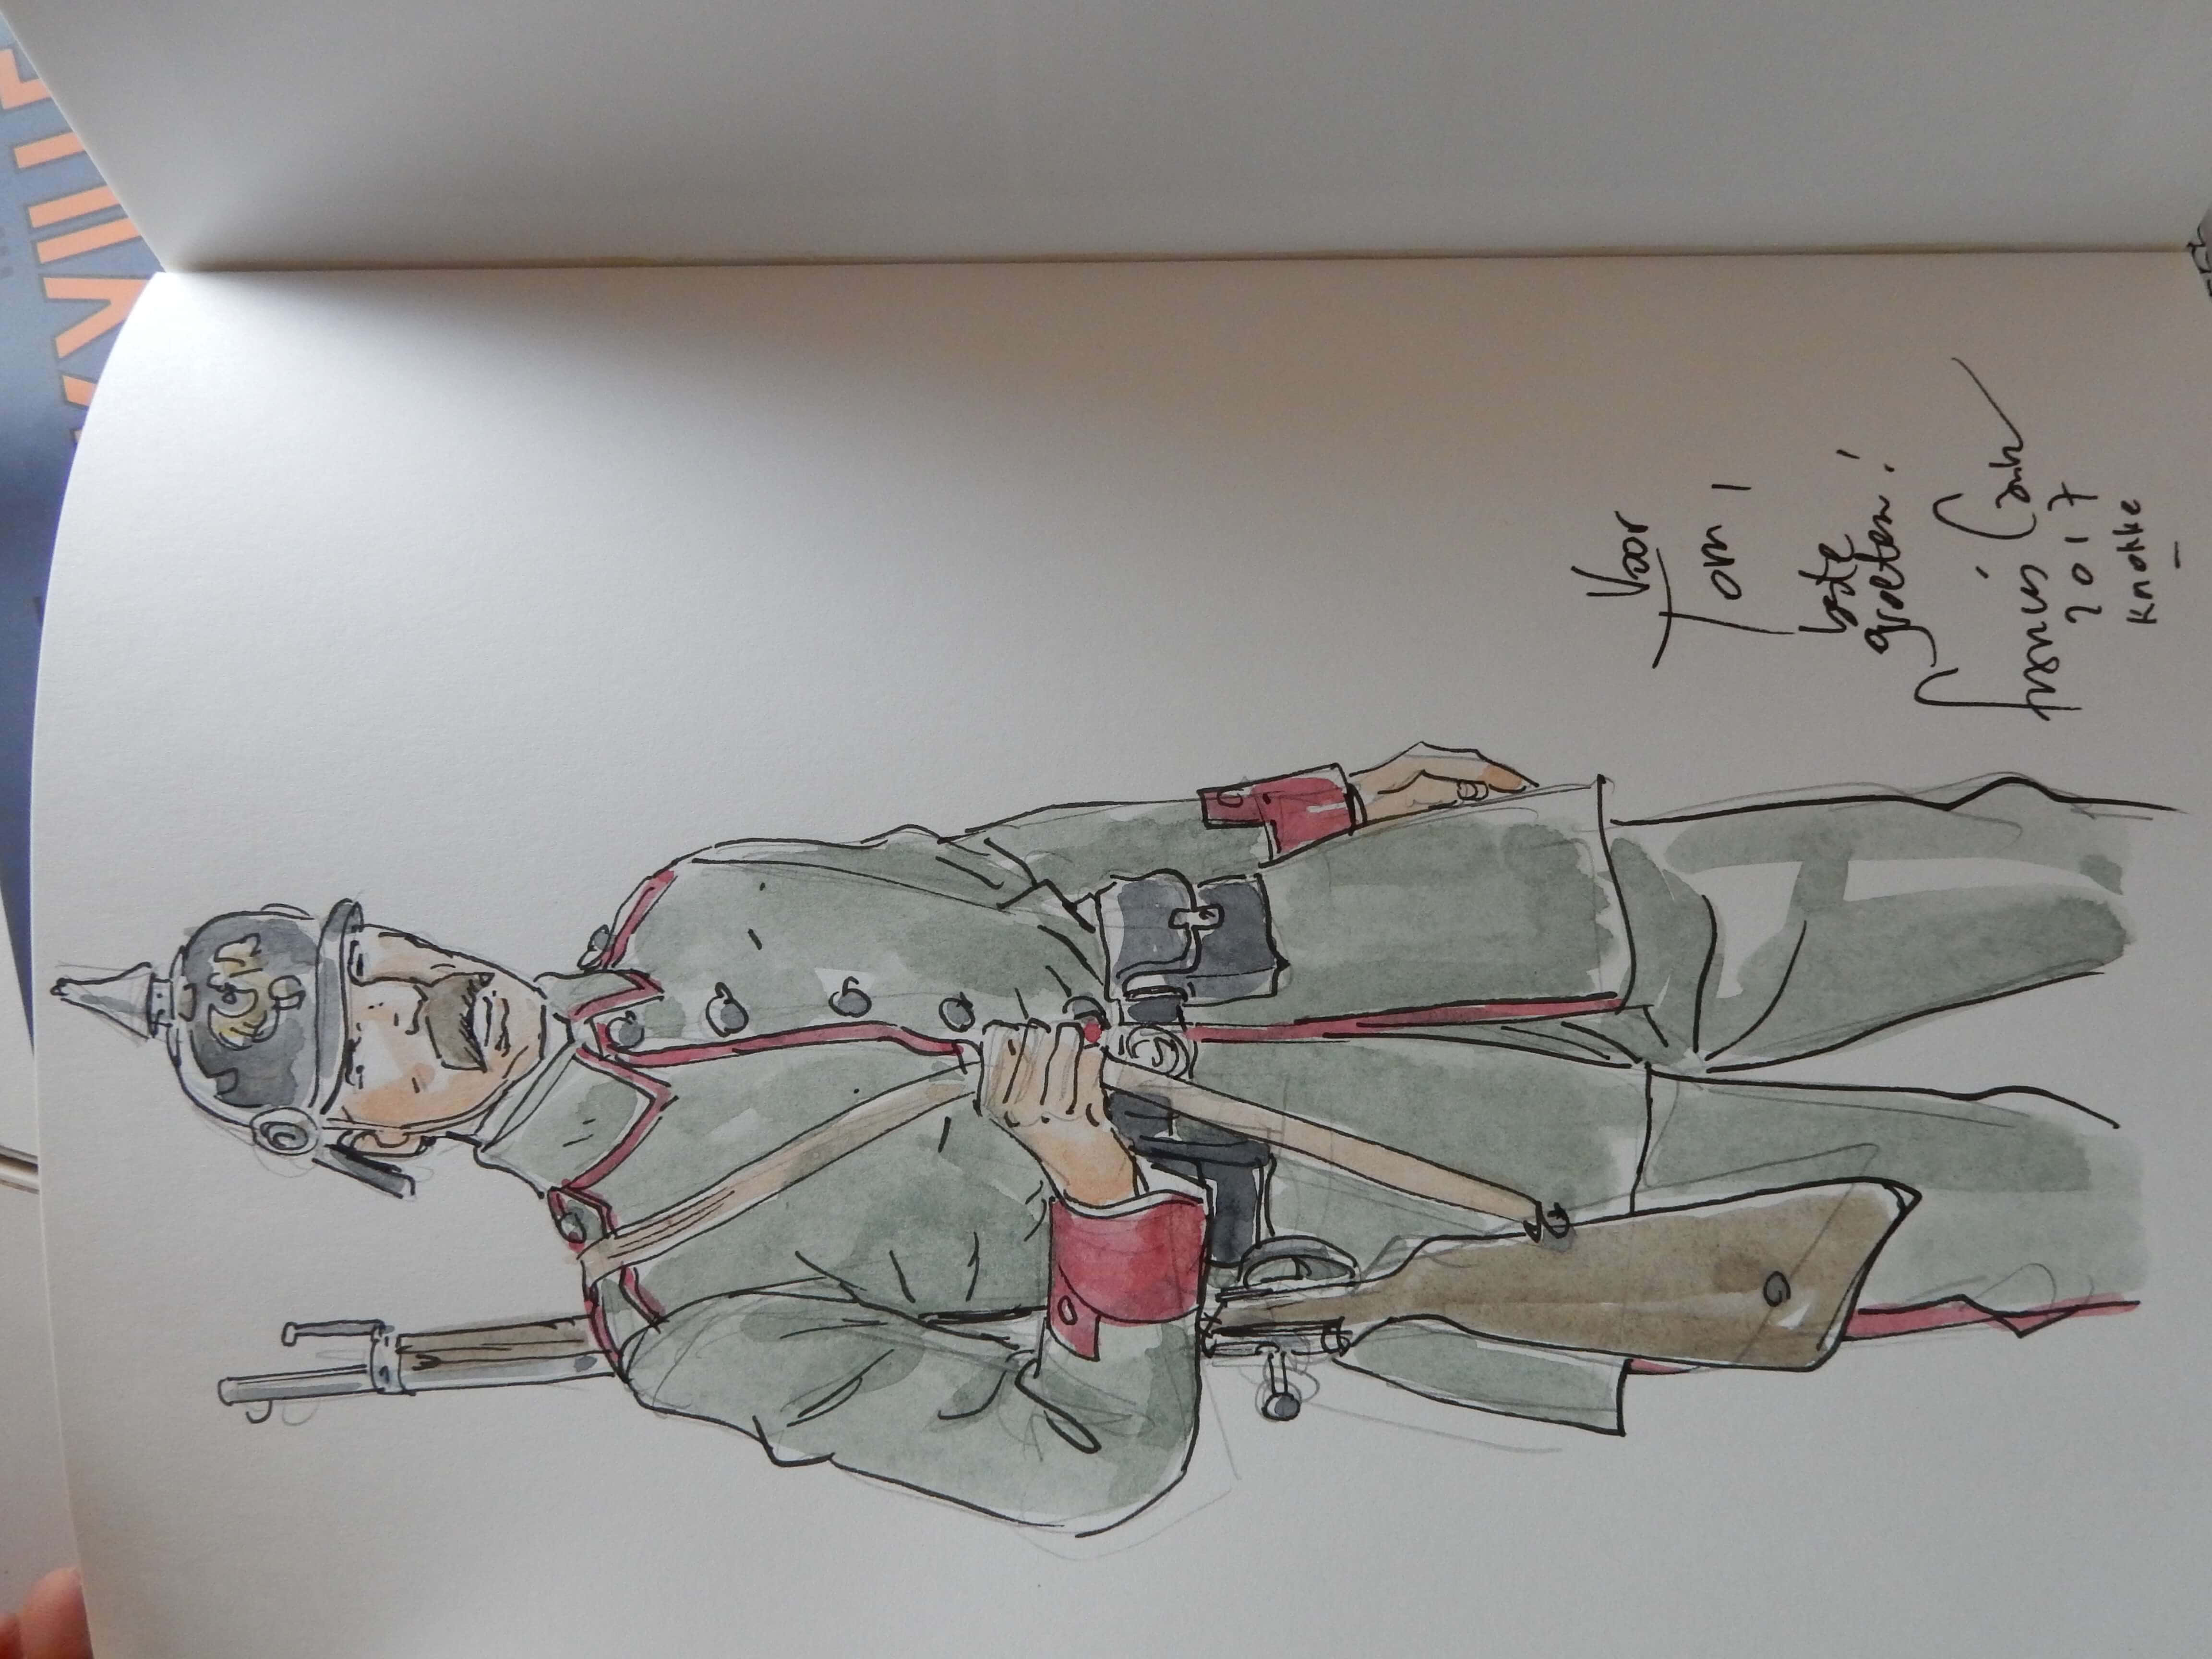 KVILLE
Voor
Tom,
beste
groeten!
Francis Carin
2017
Knokke